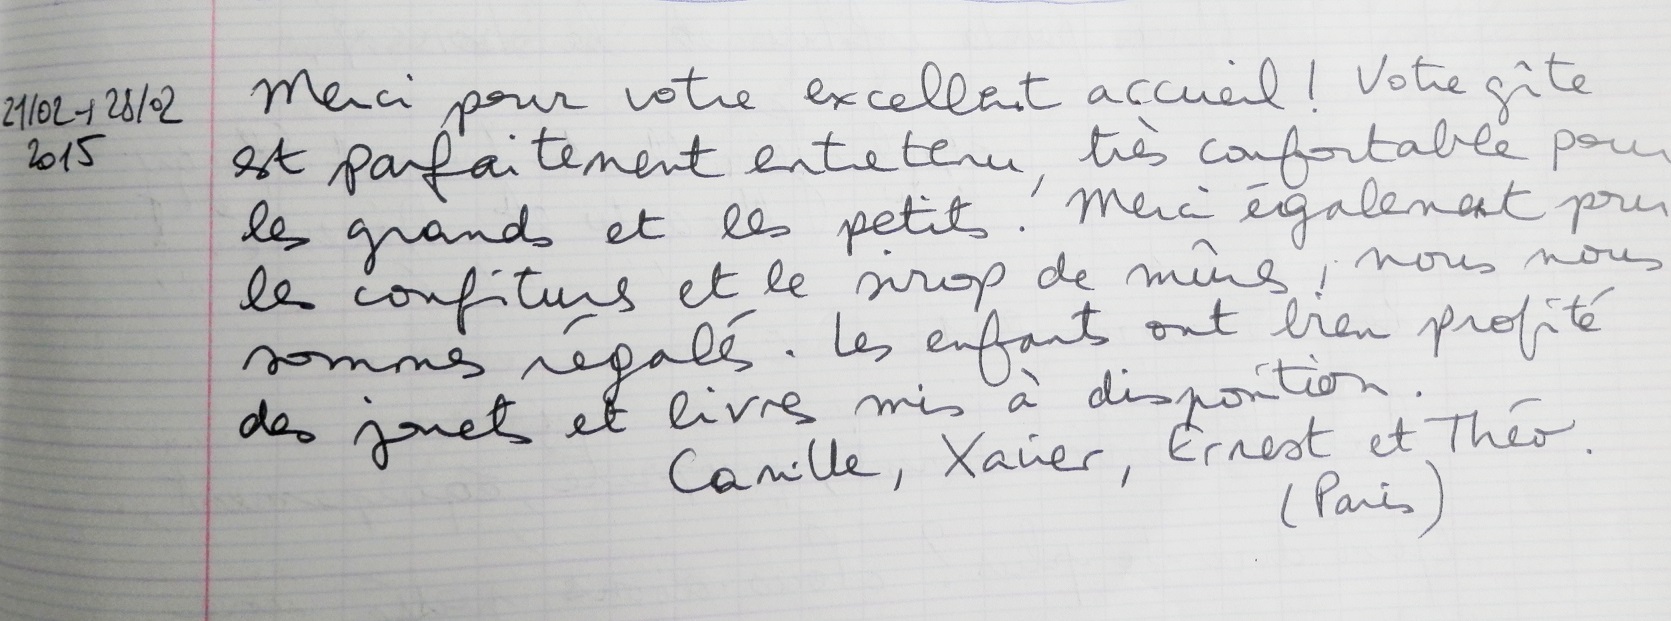 21/02 → 28/02
2015
Merci pour votre excellent accueil ! Votre gîte
est parfaitement entretenu, très confortable pour
les grands et les petits ! Merci également pour
les confitures et le sirop de mûres, nous nous
sommes régalés. Les enfants ont bien profité
des jouets et livres mis à disposition.
Camille, Xavier, Ernest et Théo.
(Paris)